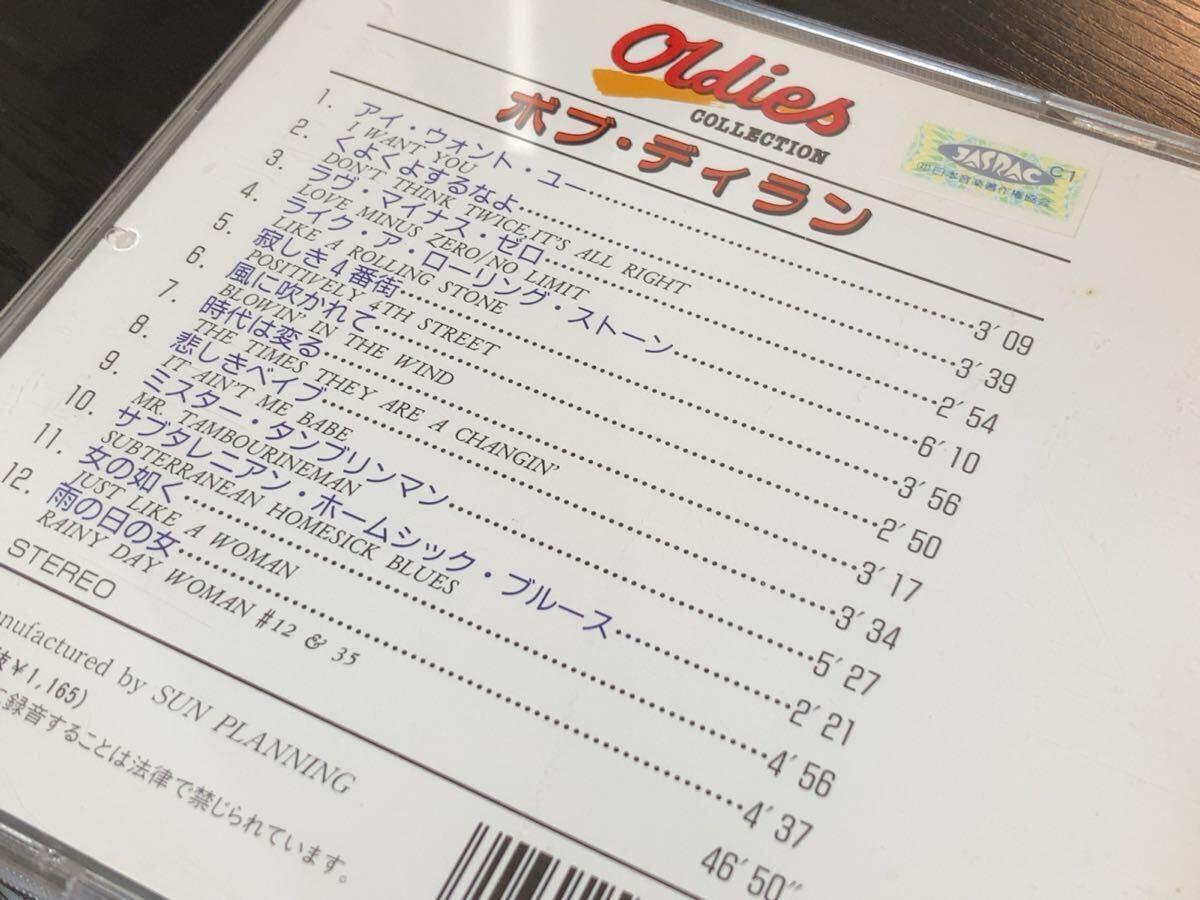 Oldies
COLLECTION
ボブ・ディラン
JASRAC C1
日本音楽著作権協会
1. アイ・ウォント・ユー 3′09
I WANT YOU
2. くよくよするなよ 3′39
DON'T THINK TWICE,IT'S ALL RIGHT
3. ラヴ・マイナス・ゼロ 2′54
LOVE MINUS ZERO/NO LIMIT
4. ライク・ア・ローリング・ストーン 6′10
LIKE A ROLLING STONE
5. 寂しき4番街 3′56
POSITIVELY 4TH STREET
6. 風に吹かれて 2′50
BLOWIN' IN THE WIND
7. 時代は変る 3′17
THE TIMES THEY ARE A CHANGIN'
8. 悲しきベイブ 3′34
IT AIN'T ME BABE
9. ミスター・タンブリンマン 5′27
MR. TAMBOURINEMAN
10. サブタレニアン・ホームシック・ブルース 2′21
SUBTERRANEAN HOMESICK BLUES
11. 女の如く 4′56
JUST LIKE A WOMAN
12. 雨の日の女 4′37
RAINY DAY WOMAN #12 & 35
46′50″
STEREO
anufactured by SUN PLANNING
抜¥1,165)
録音することは法律で禁じられています。